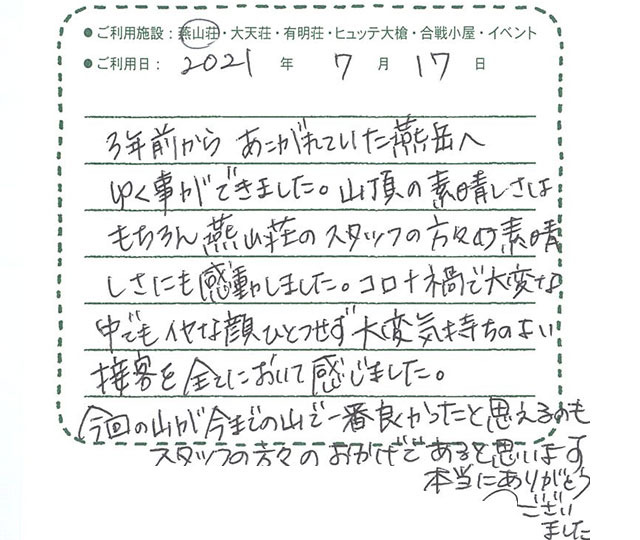 ●ご利用施設：燕山荘・大天荘・有明荘・ヒュッテ大槍・合戦小屋・イベント
●ご利用日：2021年7月17日
3年前から あこがれていた燕岳へ
ゆく事ができました。山頂の素晴しさは
もちろん 燕山荘のスタッフの方々の素晴
しさにも感動しました。コロナ禍で大変な
中でもイヤな顔ひとつせず大変気持ちのよい
接客を全てにおいて感じました。
今回の山が今までの山で一番良かったと思えるのも
スタッフの方々のおかげであると思います
本当にありがとう
ござい
ました